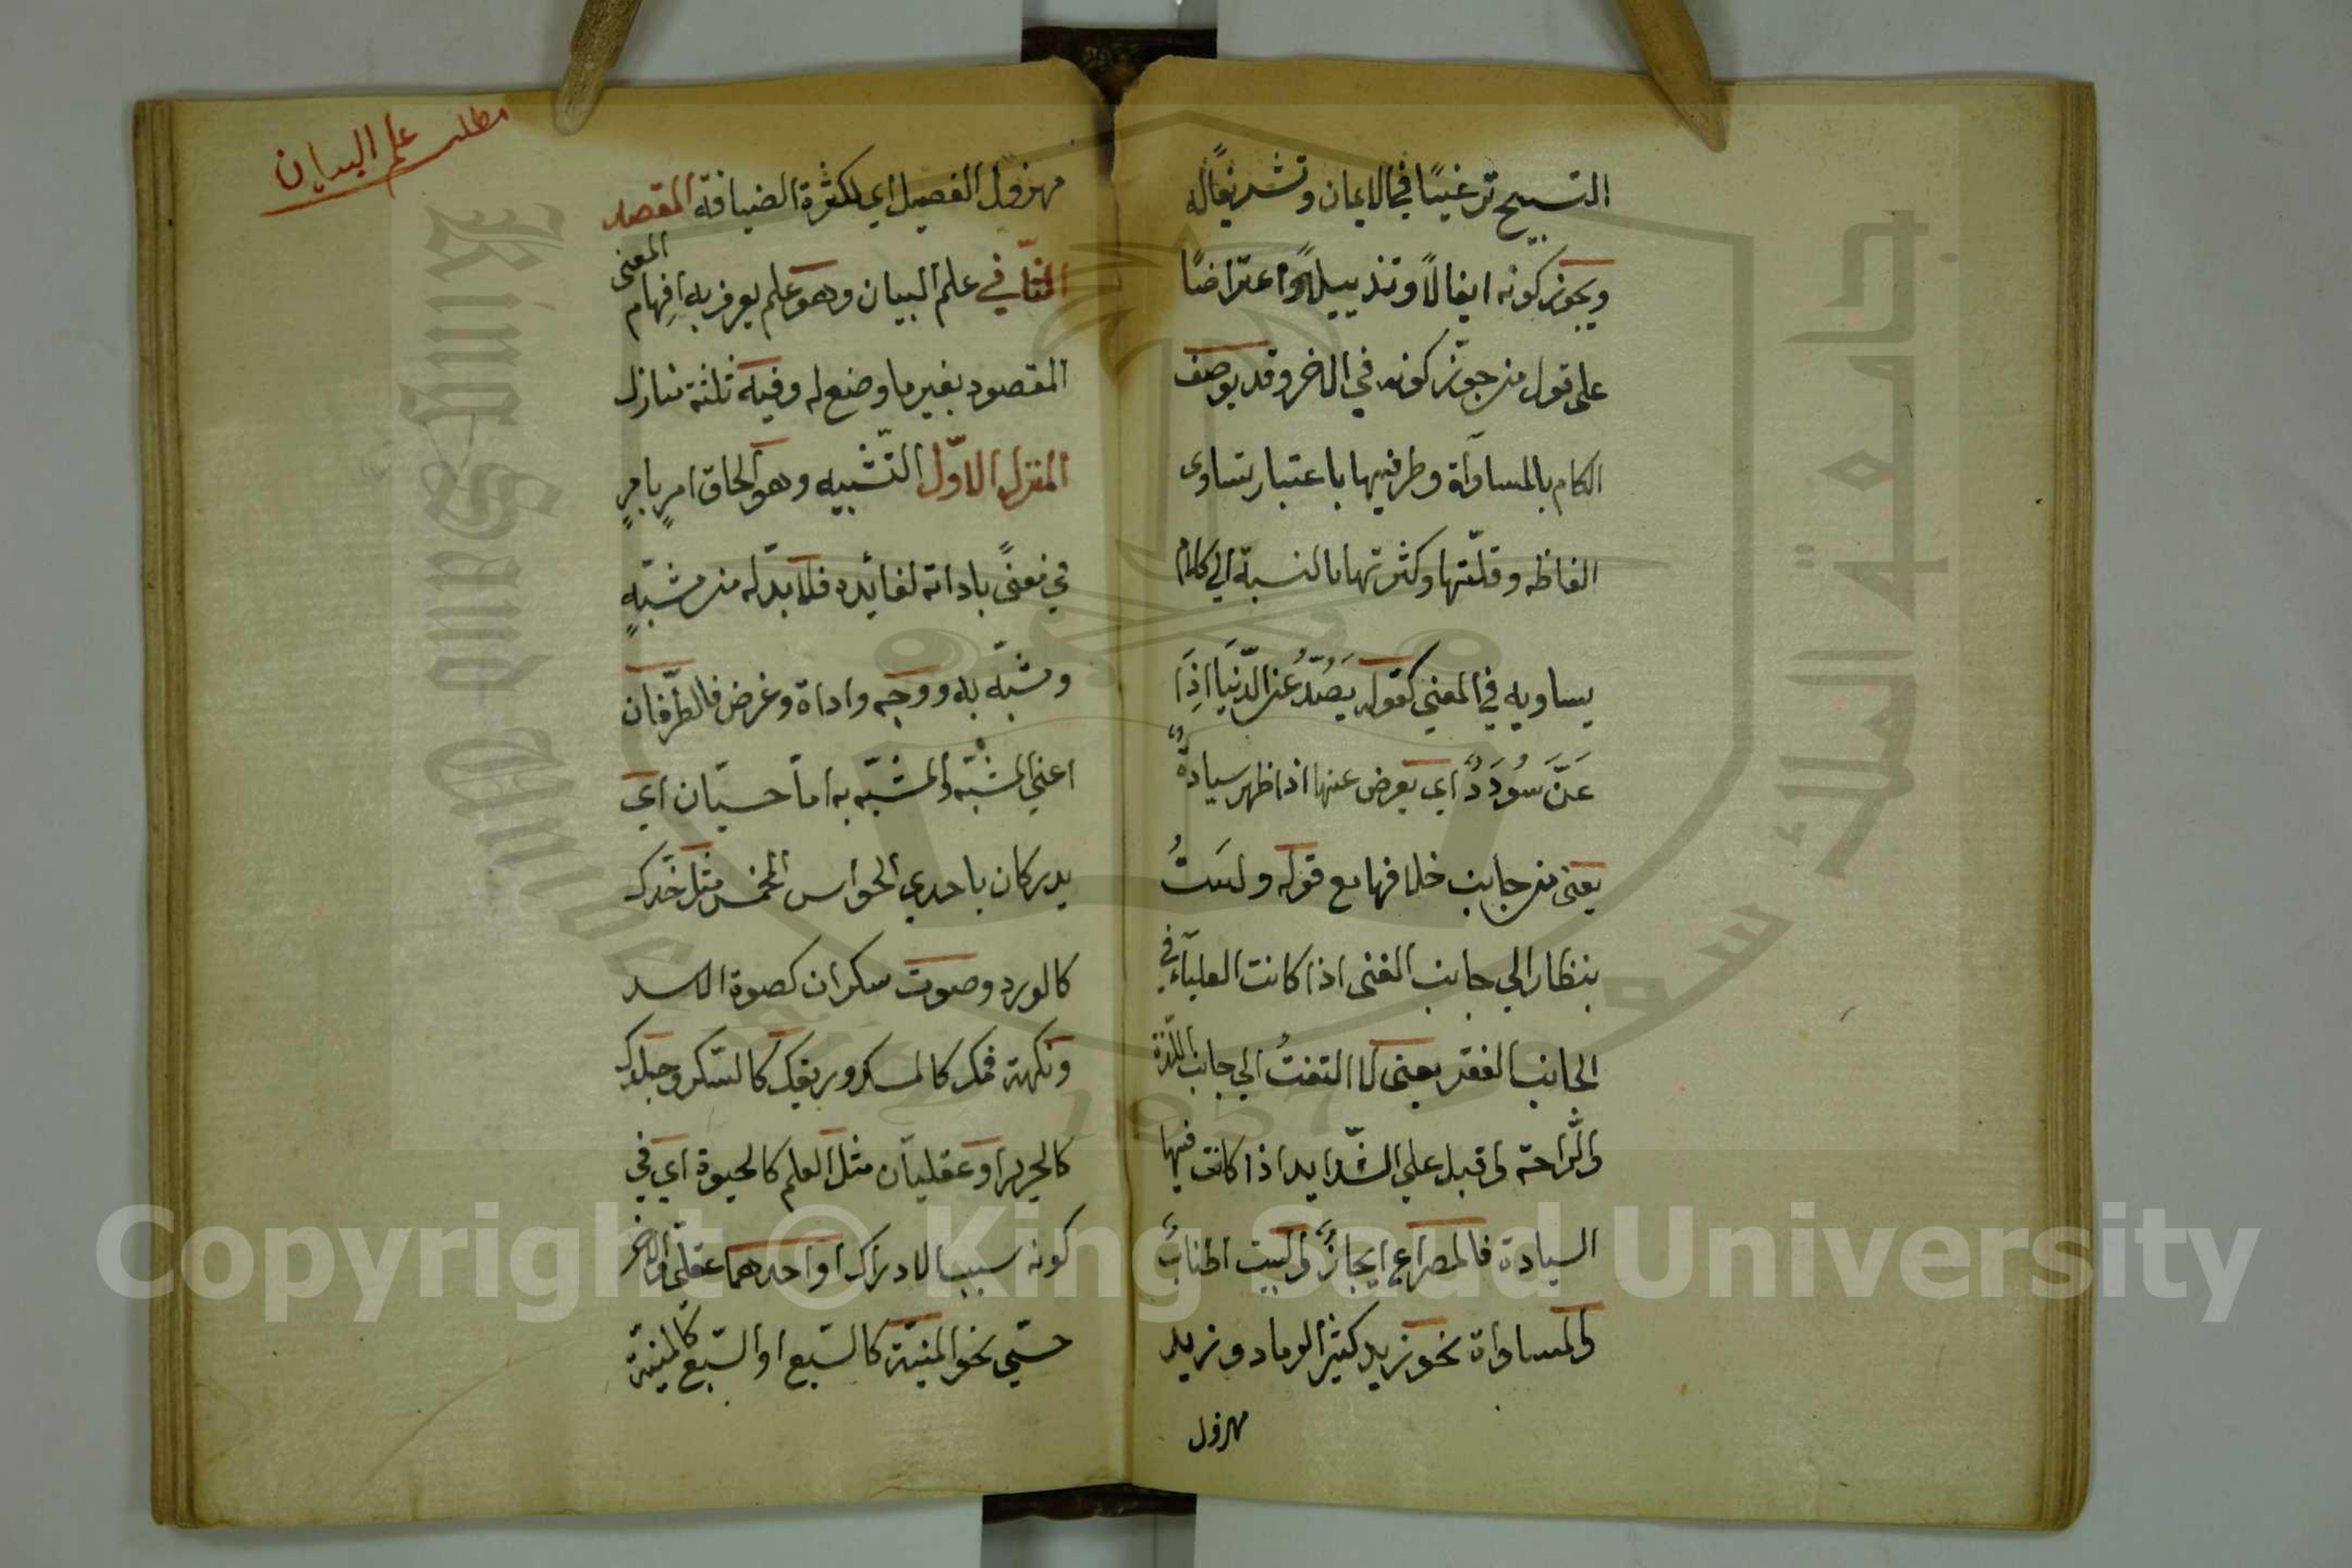 التسبيح ترغيبًا في الايمان وتشريفًا له
ويجوز كونه ايغالاً وتذييلاً واعتراضًا
على قول من جوّز كونه في الاخر وقد يوصف
الكلام بالمساواة وطرفيها باعتبار تساوى
الفاظه وقلّتها وكثرتها بالنسبة الى كلام
يساويه في المعنى كقوله يَصُدُّ عن الدّنيَا اذَا
عَنَّ سُودَدٌ اي يعرض عنها اذا ظهر سيادةٌ
يعنى من جانب خلافها مع قوله ولستُ
بنظار الى جانب الغنى اذا كانت العلياء في
الجانب الفقر يعنى لا التفتُ الى جانب اللّذة
والرّاحة واقبل على الشّدايد اذا كانت فيها
السيادة فالمصراع ايجازٌ والبيت اطنابٌ
والمساواة نحو زيد كثير الرماد وزيد
مهزول
مطلب علم البيان
مهزول الفصيل اي لكثرة الضيافة المقصد
الثاني في علم البيان وهو علم يعرف به افهام المعنى
المقصود بغير ما وضع له وفيه ثلثة منازل
المنزل الاوّل التّشبيه وهو الحاق امرٍ بامرٍ
في معنىً باداته لفائده فلا بدّ له من مشبّهٍ
ومشبّه به ووجه واداة وغرض فالطّرفان
اعني المشبّه والمشبّه به امّا حسيّان اي
يدركان باحدي الحواس الخمس مثل خدّك
كالورد وصوت سكران كصوة الاسد
ونكهة فمك كالمسك وريقك كالسّكر وجلدك
كالحرير او عقليان مثل العلم كالحيوة اي في
كونه سببا لادراك او احدهما عقلى والاخر
حسّي نحو المنيّة كالسّبع او السّبع كالمنيّة
Copyright © King Saud University
King Saud University
جامعة الملك سعود
1957